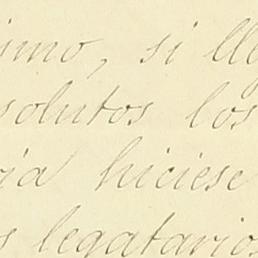 imo, si lle
solutos los
ria hiciese
s legatarios